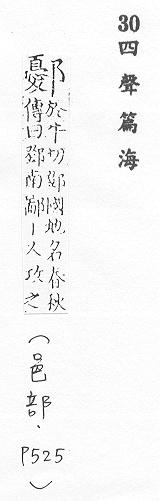 30 四聲篇海
鄾 於牛切國地名春秋
傳曰鄧南鄙丨人攻之
(邑部、P525)